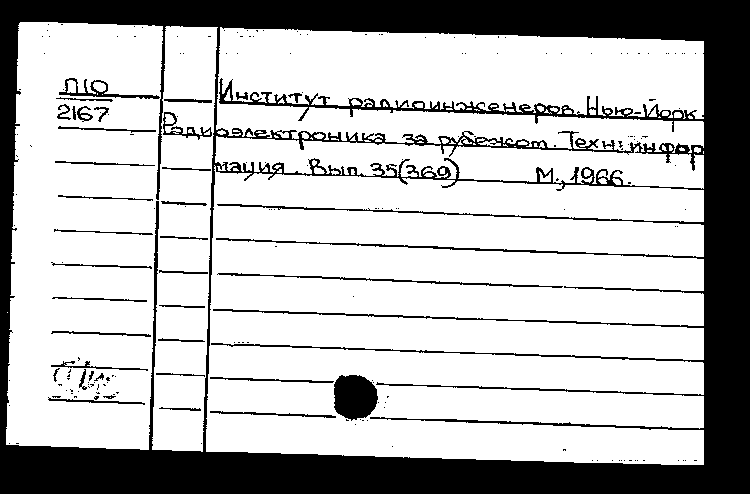 П10
2167
Институт радиоинженеров. Нью-Йорк.
Радиоэлектроника за рубежом. Техн. инфор
мация. Вып. 35(369) М., 1966.